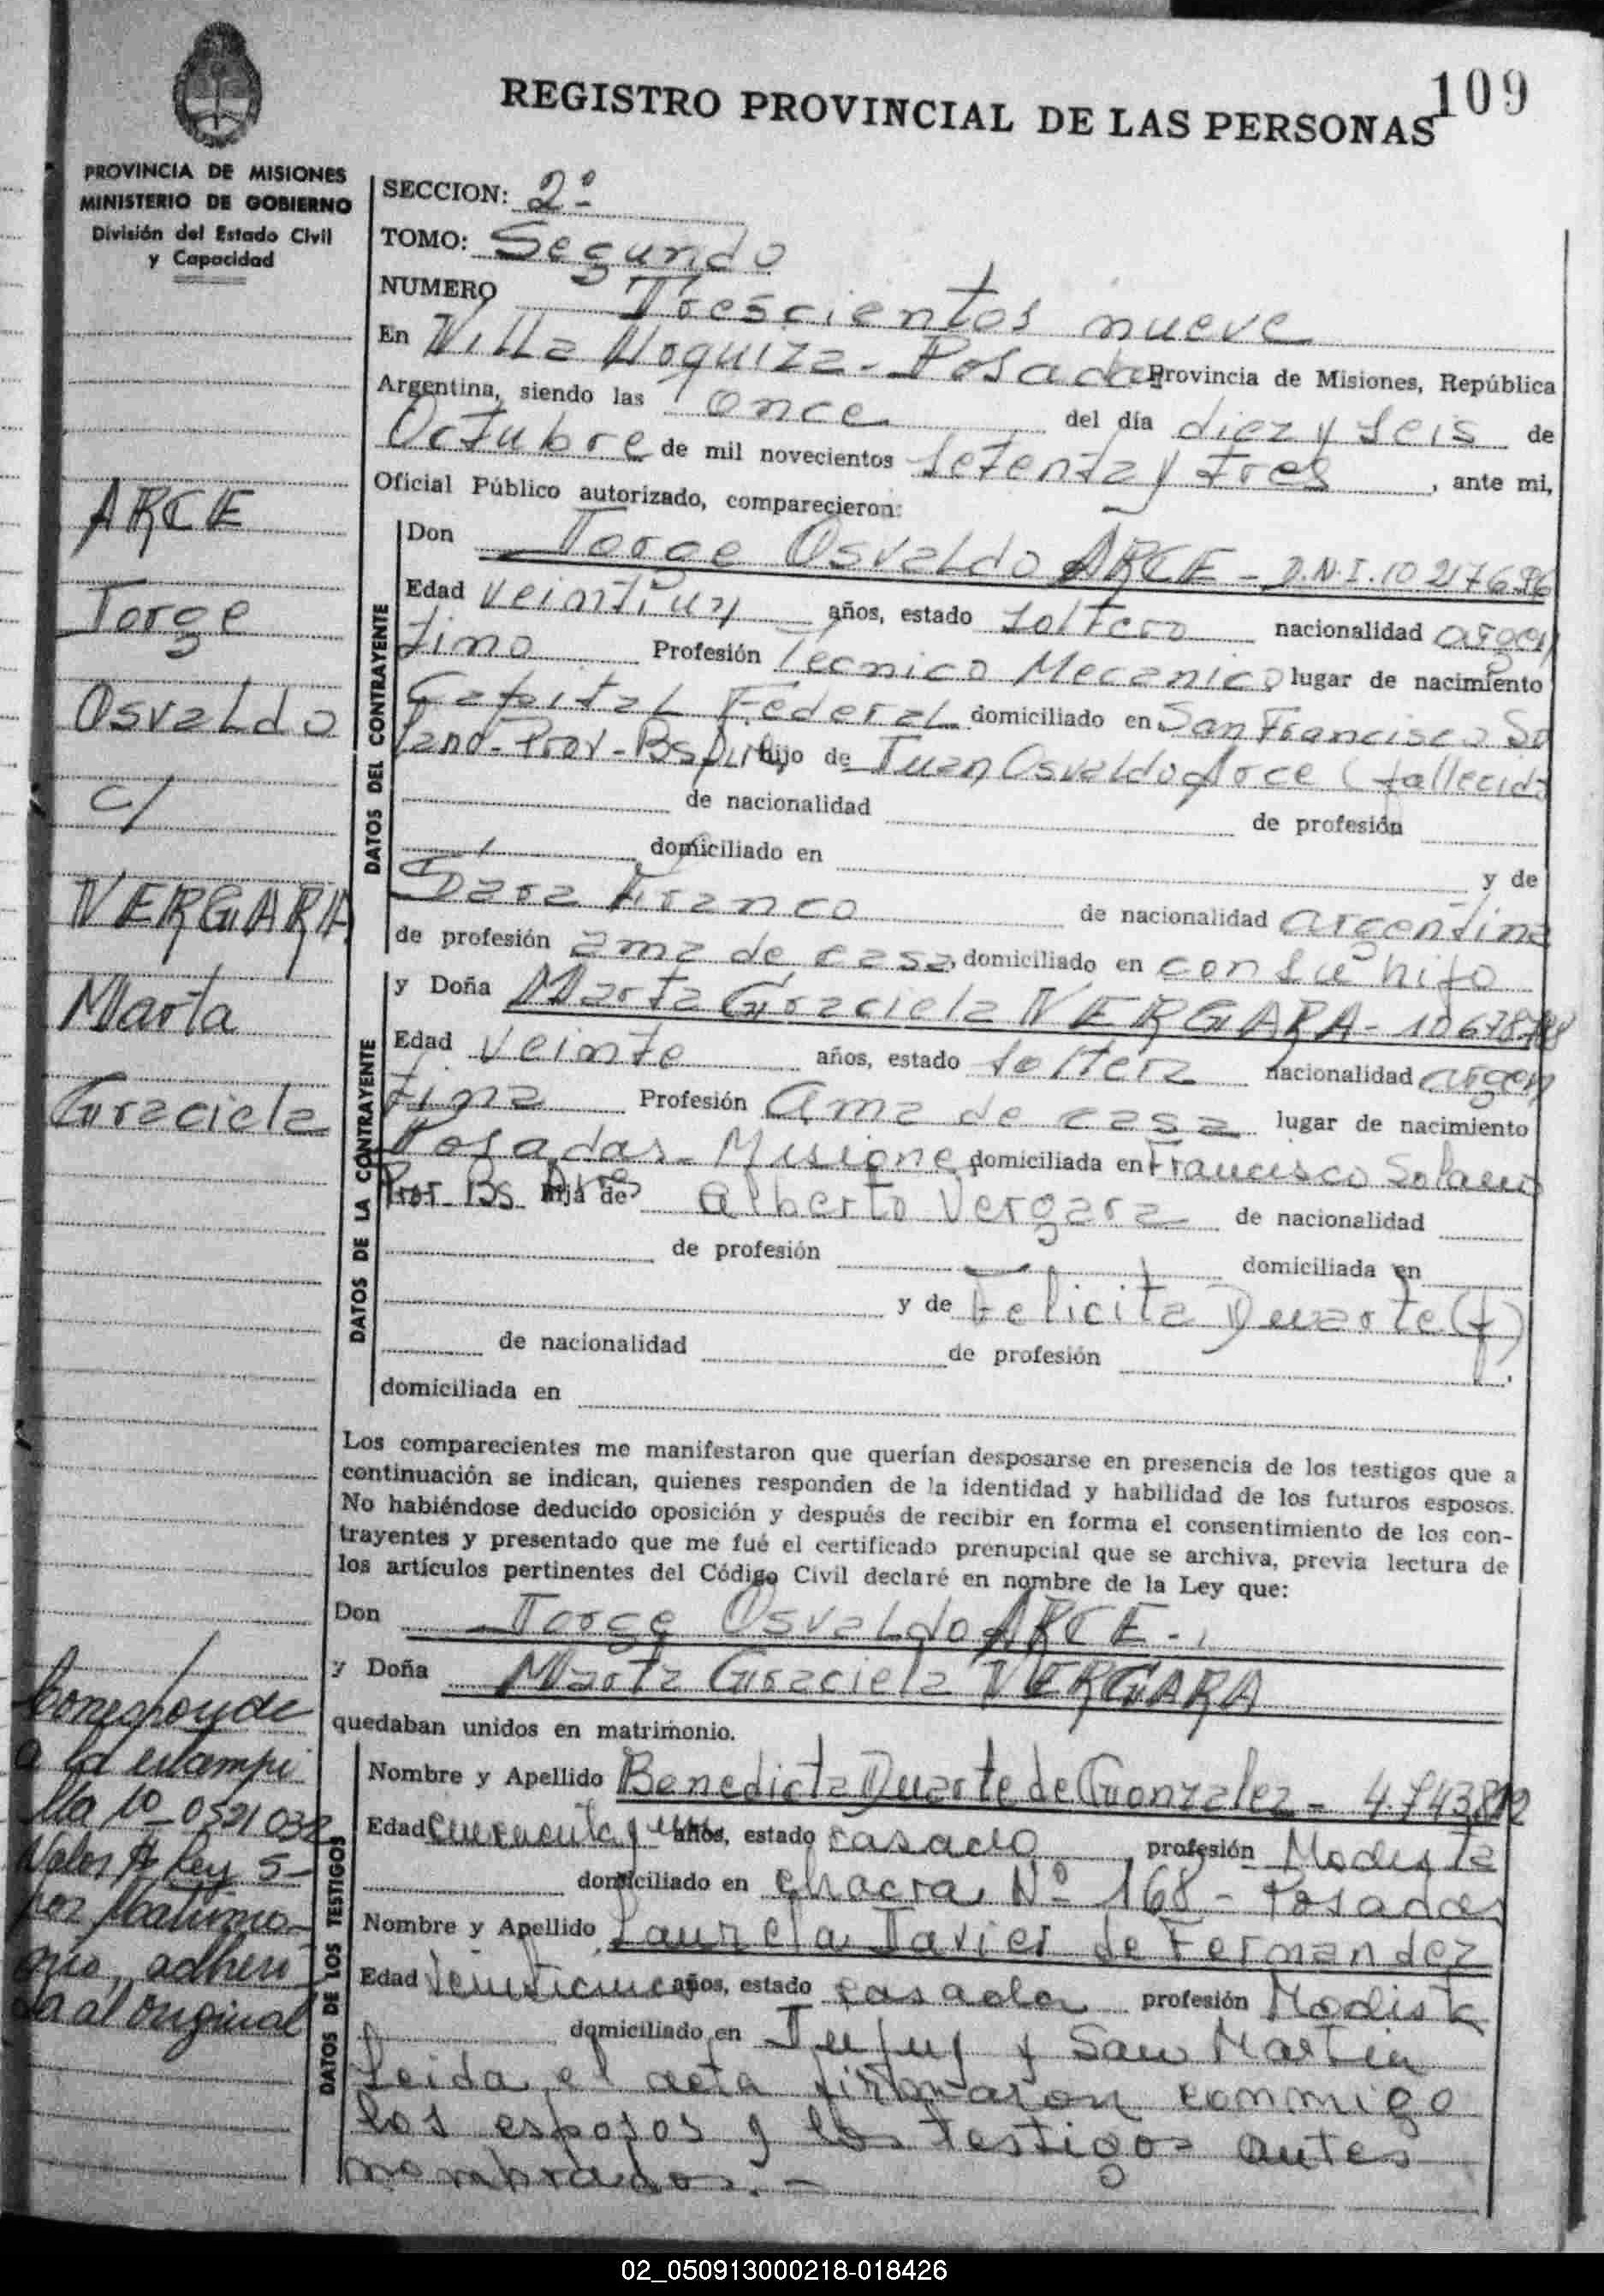 109
REGISTRO PROVINCIAL DE LAS PERSONAS
PROVINCIA DE MISIONES
MINISTERIO DE GOBIERNO
División del Estado Civil
y Capacidad
SECCION: 2ª
TOMO: Segundo
NUMERO Trescientos nueve
En Villa Urquiza - Posadas Provincia de Misiones, República
Argentina, siendo las once del día diez y seis de
Octubre de mil novecientos setenta y tres, ante mi,
Oficial Público autorizado, comparecieron:
ARCE
Jorge
Osvaldo
c/
VERGARA
Marta
Graciela
DATOS DEL CONTRAYENTE
Don Jorge Osvaldo ARCE - D.N.I. 10 217696
Edad veintiun años, estado soltero nacionalidad argen
tino Profesión Técnico Mecanico lugar de nacimiento
Capital Federal domiciliado en San Francisco So
lano - Prov - Bs hijo de Juan Osvaldo Arce (fallecido
de nacionalidad de profesión
domiciliado en y de
Sara Franco de nacionalidad argentina
de profesión ama de casa, domiciliado en con su hijo
DATOS DE LA CONTRAYENTE
y Doña Marta Graciela VERGARA - 10678788
Edad veinte años, estado soltera nacionalidad argen
tina Profesión ama de casa lugar de nacimiento
Posadas - Misiones domiciliada en Francisco Solano
Prov. Bs Aires hija de Alberto Vergara de nacionalidad
de profesión domiciliada en
y de Felicita Duarte (f)
de nacionalidad de profesión
domiciliada en
Los comparecientes me manifestaron que querían desposarse en presencia de los testigos que a
continuación se indican, quienes responden de la identidad y habilidad de los futuros esposos.
No habiéndose deducido oposición y después de recibir en forma el consentimiento de los con-
trayentes y presentado que me fué el certificado prenupcial que se archiva, previa lectura de
los artículos pertinentes del Código Civil declaré en nombre de la Ley que:
Don Jorge Osvaldo ARCE -
y Doña Marta Graciela VERGARA
quedaban unidos en matrimonio.
Corresponde
a la estampi
lla 10-0521032
Valor $ Ley 5-
por Matrimo-
nio, adheri
da al original
DATOS DE LOS TESTIGOS
Nombre y Apellido Benedicta Duarte de Gonzalez -
Edad años, estado casado profesión Modista
domiciliado en Chacra Nº 168 - Posadas
Nombre y Apellido Laurela Javier de Fernandez
Edad Veinticinco años, estado casada profesión Modista
domiciliado en Jujuy y San Martin
Leida el acta firmaron conmigo
los esposos y los testigos antes
nombrados. -
02_050913000218-018426